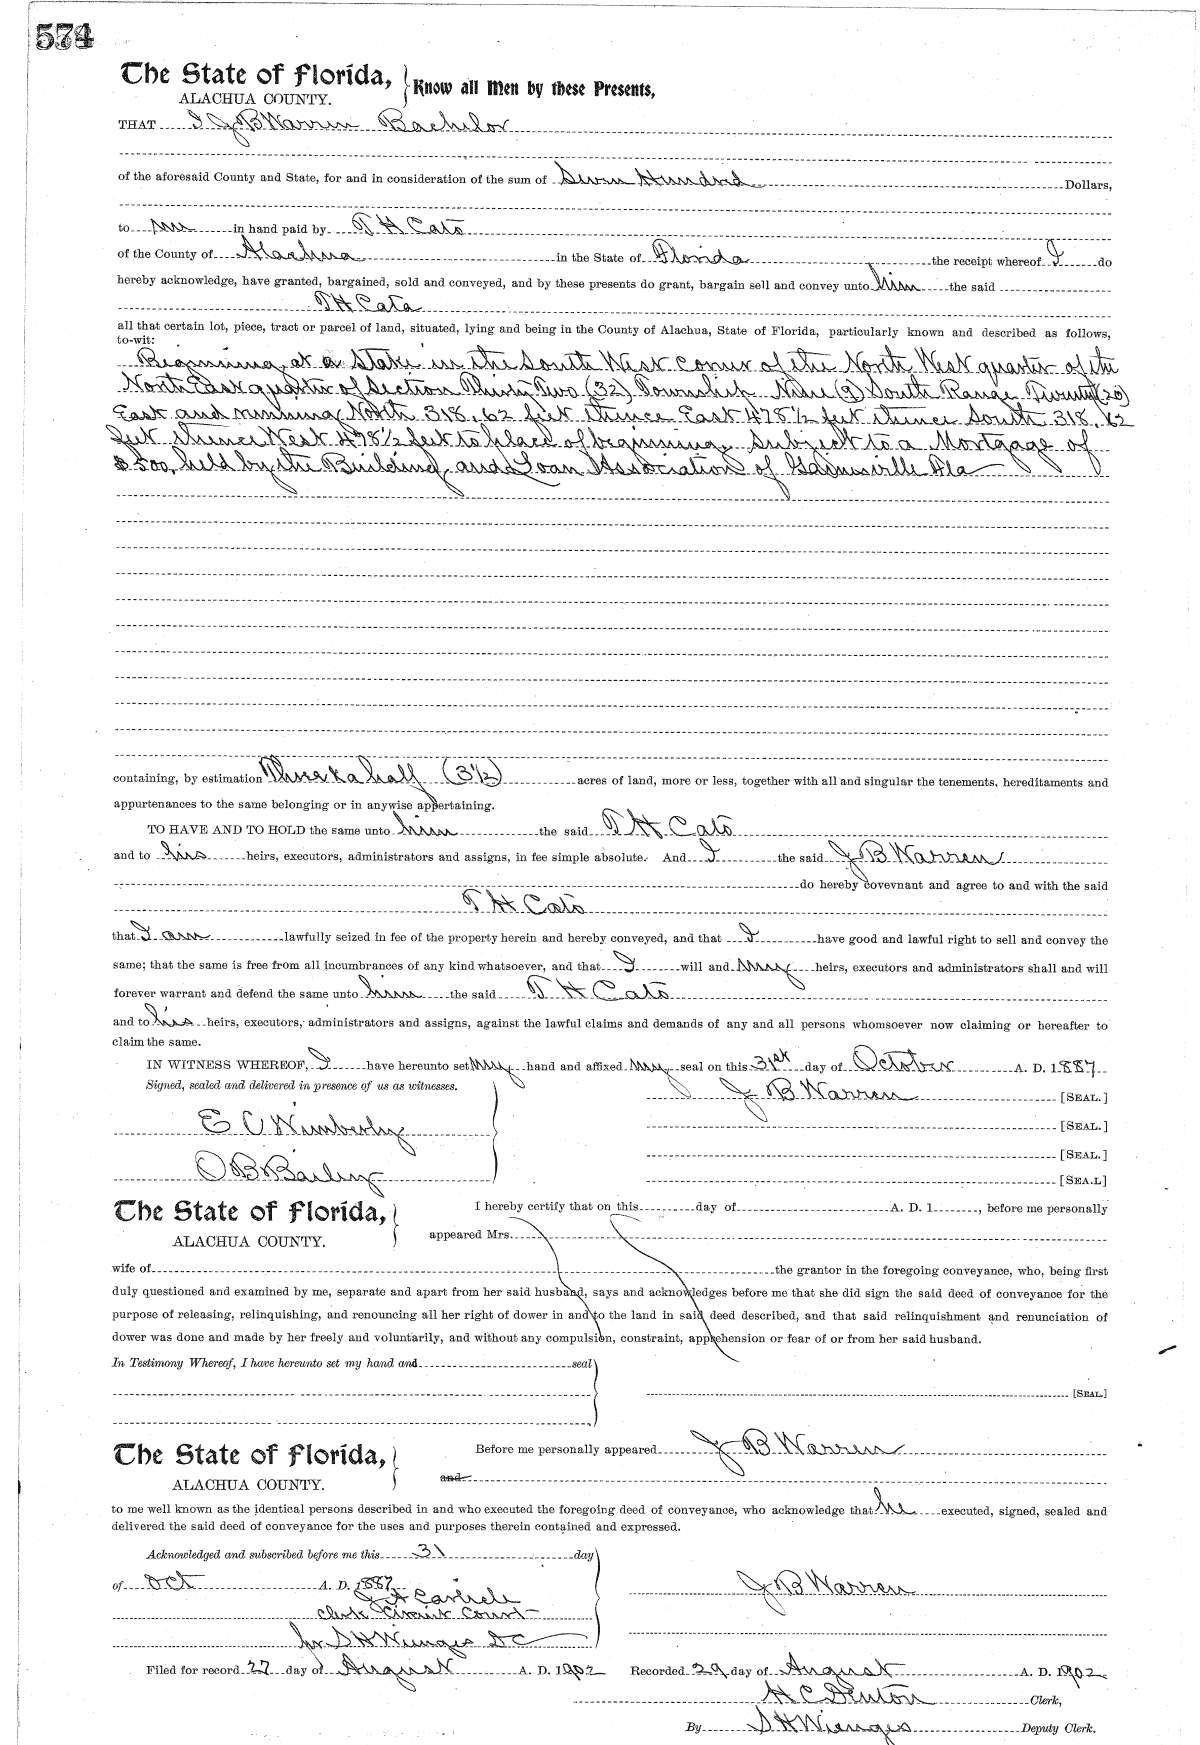 574
The State of Florida,
ALACHUA COUNTY.
Know all Men by these Presents,
THAT I J B Warren Bachelor
of the aforesaid County and State, for and in consideration of the sum of Seven Hundred Dollars,
to me in hand paid by T H Cato
of the County of Alachua in the State of Florida the receipt whereof I do
hereby acknowledge, have granted, bargained, sold and conveyed, and by these presents do grant, bargain sell and convey unto him the said
T H Cato
all that certain lot, piece, tract or parcel of land, situated, lying and being in the County of Alachua, State of Florida, particularly known and described as follows,
to-wit:
Beginning at a Stake in the South West corner of the North West quarter of the
North East quarter of Section Thirty Two (32) Township Nine (9) South Range Twenty (20)
East and running North 318.62 feet thence East 478½ feet thence South 318.62
feet thence West 478½ feet to place of beginning. Subject to a Mortgage of
$500, held by the Building and Loan Association of Gainesville Fla
containing, by estimation Three & a half (3½) acres of land, more or less, together with all and singular the tenements, hereditaments and
appurtenances to the same belonging or in anywise appertaining.
TO HAVE AND TO HOLD the same unto him the said T H Cato
and to his heirs, executors, administrators and assigns, in fee simple absolute. And I the said J B Warren
do hereby covevnant and agree to and with the said
T H Cato
that I am lawfully seized in fee of the property herein and hereby conveyed, and that I have good and lawful right to sell and convey the
same; that the same is free from all incumbrances of any kind whatsoever, and that I will and my heirs, executors and administrators shall and will
forever warrant and defend the same unto him the said T H Cato
and to his heirs, executors, administrators and assigns, against the lawful claims and demands of any and all persons whomsoever now claiming or hereafter to
claim the same.
IN WITNESS WHEREOF, I have hereunto set my hand and affixed my seal on this 31st day of October A. D. 1887
Signed, sealed and delivered in presence of us as witnesses.
J B Warren [SEAL.]
E C Wimberly [SEAL.]
[SEAL.]
O B Bailey [SEA.L]
The State of Florida,
ALACHUA COUNTY.
I hereby certify that on this day of A. D. 1 , before me personally
appeared Mrs.
wife of the grantor in the foregoing conveyance, who, being first
duly questioned and examined by me, separate and apart from her said husband, says and acknowledges before me that she did sign the said deed of conveyance for the
purpose of releasing, relinquishing, and renouncing all her right of dower in and to the land in said deed described, and that said relinquishment and renunciation of
dower was done and made by her freely and voluntarily, and without any compulsion, constraint, apprehension or fear of or from her said husband.
In Testimony Whereof, I have hereunto set my hand and seal
[SEAL.]
The State of Florida,
ALACHUA COUNTY.
Before me personally appeared J B Warren
and
to me well known as the identical persons described in and who executed the foregoing deed of conveyance, who acknowledge that he executed, signed, sealed and
delivered the said deed of conveyance for the uses and purposes therein contained and expressed.
Acknowledged and subscribed before me this 31 day
of Oct A. D. 1887
J B Warren
J A Carlisle
Clerk Circuit Court
by S H Wienges D C
Filed for record 27 day of August A. D. 1902 Recorded 29 day of August A. D. 1902
H C Denton Clerk,
By S H Wienges Deputy Clerk.